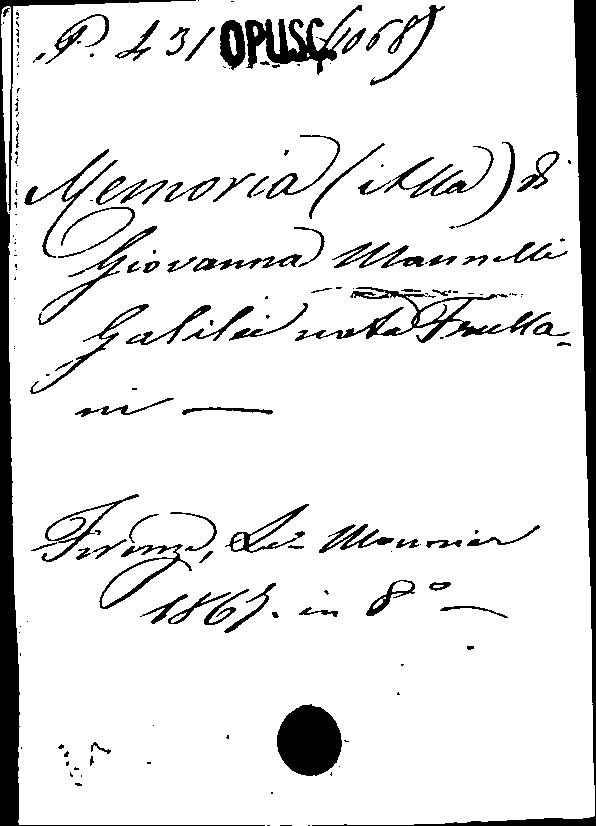 P. 431 OPUSC. (1068)
Memoria (Alla) di
Giovanna Mannelli
Galilei nata Frulla-
ni —
Firenze, Le Monnier
1867. in 8º —